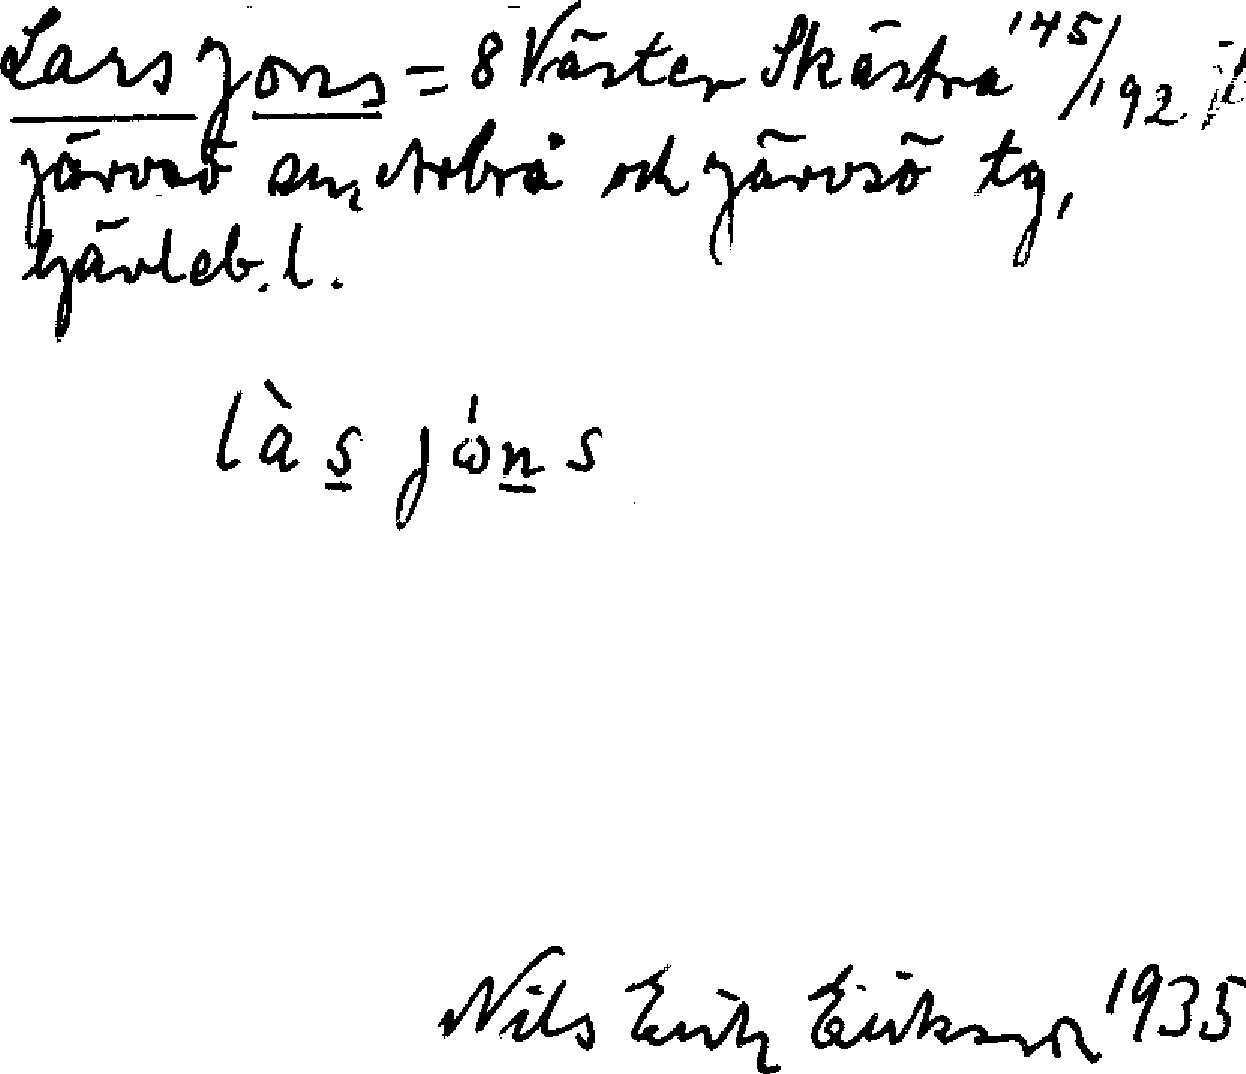 Lars Jons = 8 Väster Skästra 145/192 jb
Järvsö sn, Arbrå och Järvsö tg,
Gävleb. l.
làs jóns
Nils Erik Eriksson 1935